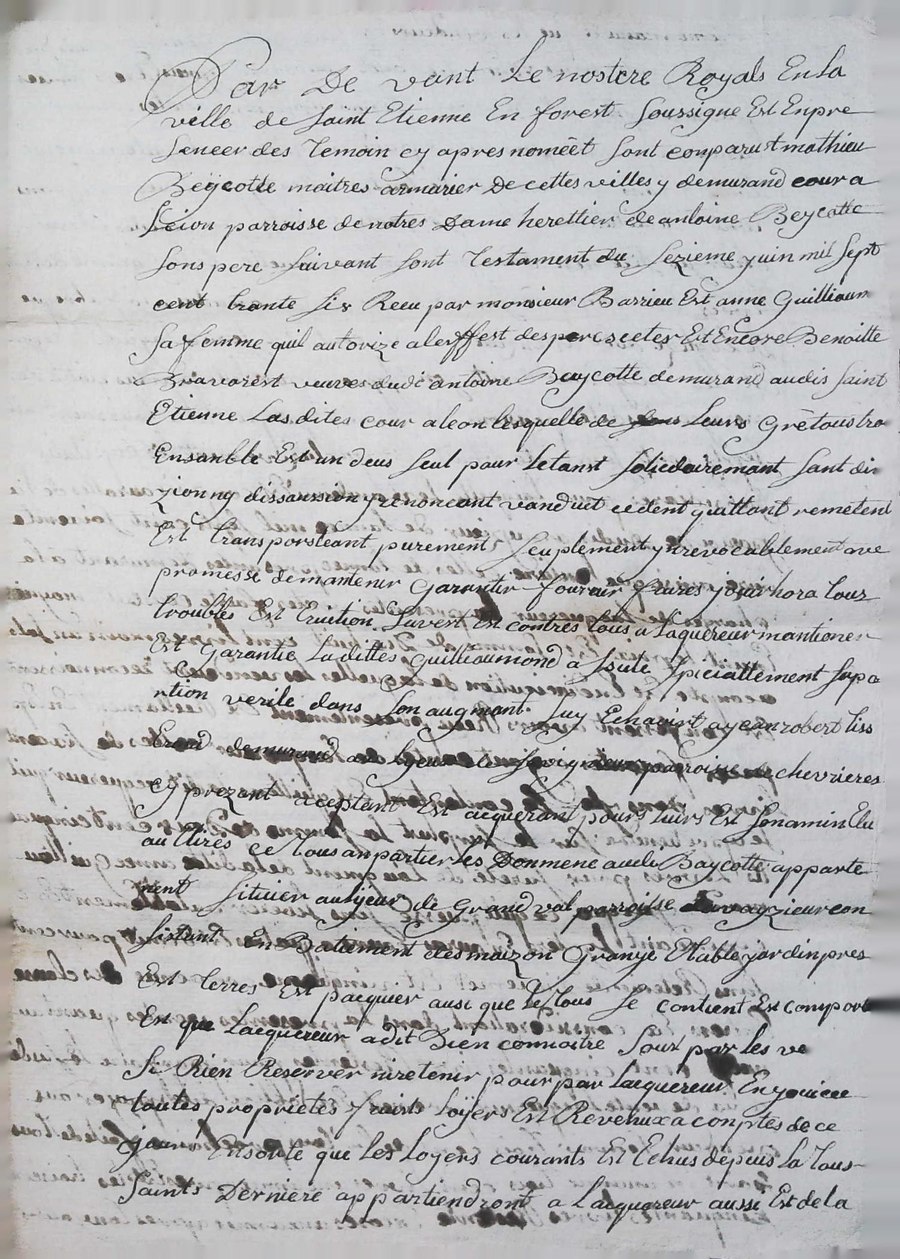 Par De vant Le nostere Royals En La
ville de Saint Etienne En forest Soussigne Est Enpre
Senceer des Temoin cy apres nomeet sont comparust mathieu
Beÿcotte maitres armarier De cettes villes y demurand cour a
Leion parroisse de notres Dame herettier de antoine Beycotte
Sons pere Suivant sont Testament du Sezieme yuin mil Sept
cent trante Six Receu par monsieur Barrieu Est anne Guilliaum
Sa femme quil autorize a leffest des peresceter Est Encore Benoitte
Bravarest veuves dudit antoine Beycotte demurand audis Saint
Etienne Lasdites cour aleon lesquelle de Leurs Grè tous tra
Ensanble Est un deus Seul pour Letanst Solicdairemant Sant div
zionny dissaussion y renoncant vanduit cedent quittant remetend
Est transporsteant purement Seuplement ynrevocablement ave
promesse demantenir Garantir fourair faires jouir hora tous
troubles Est Eruition Sarvest Est contres tous a Laquereur mantioner
Est Garantie Laditte Guilliaumond a Isute Speciallement Supa
rtion verile dans Son augmant Suy Echarist a yean robert liss
Erand demurand au lyeur de Sovigneux parroise chevrieres
cy prezant aceptant Est acquerant pours luirs Est Sonamin Elu
au tires ce tous an partier les Donmene aude Baycotte apparte
nent Situer au lyeur de Grand val parroisse Savayzieur con
sistant En Batiement des maizon Granye Etable yardin pres
Est terres Est pacquier ausi que le tous Se contient Est comport
Est que Lacquereur adit Bien connoitre Sour par les ve
Si Rien Reserver niretenir pour par Lacquereur En youiee
toutes proprietes fruist Loÿers Est Revenux a conptes de ce
your Ensorte que Les Loyers courants Est Echus depuis La Tous
Saints Derniere appartiendront a Lacquereur aussi Est de la